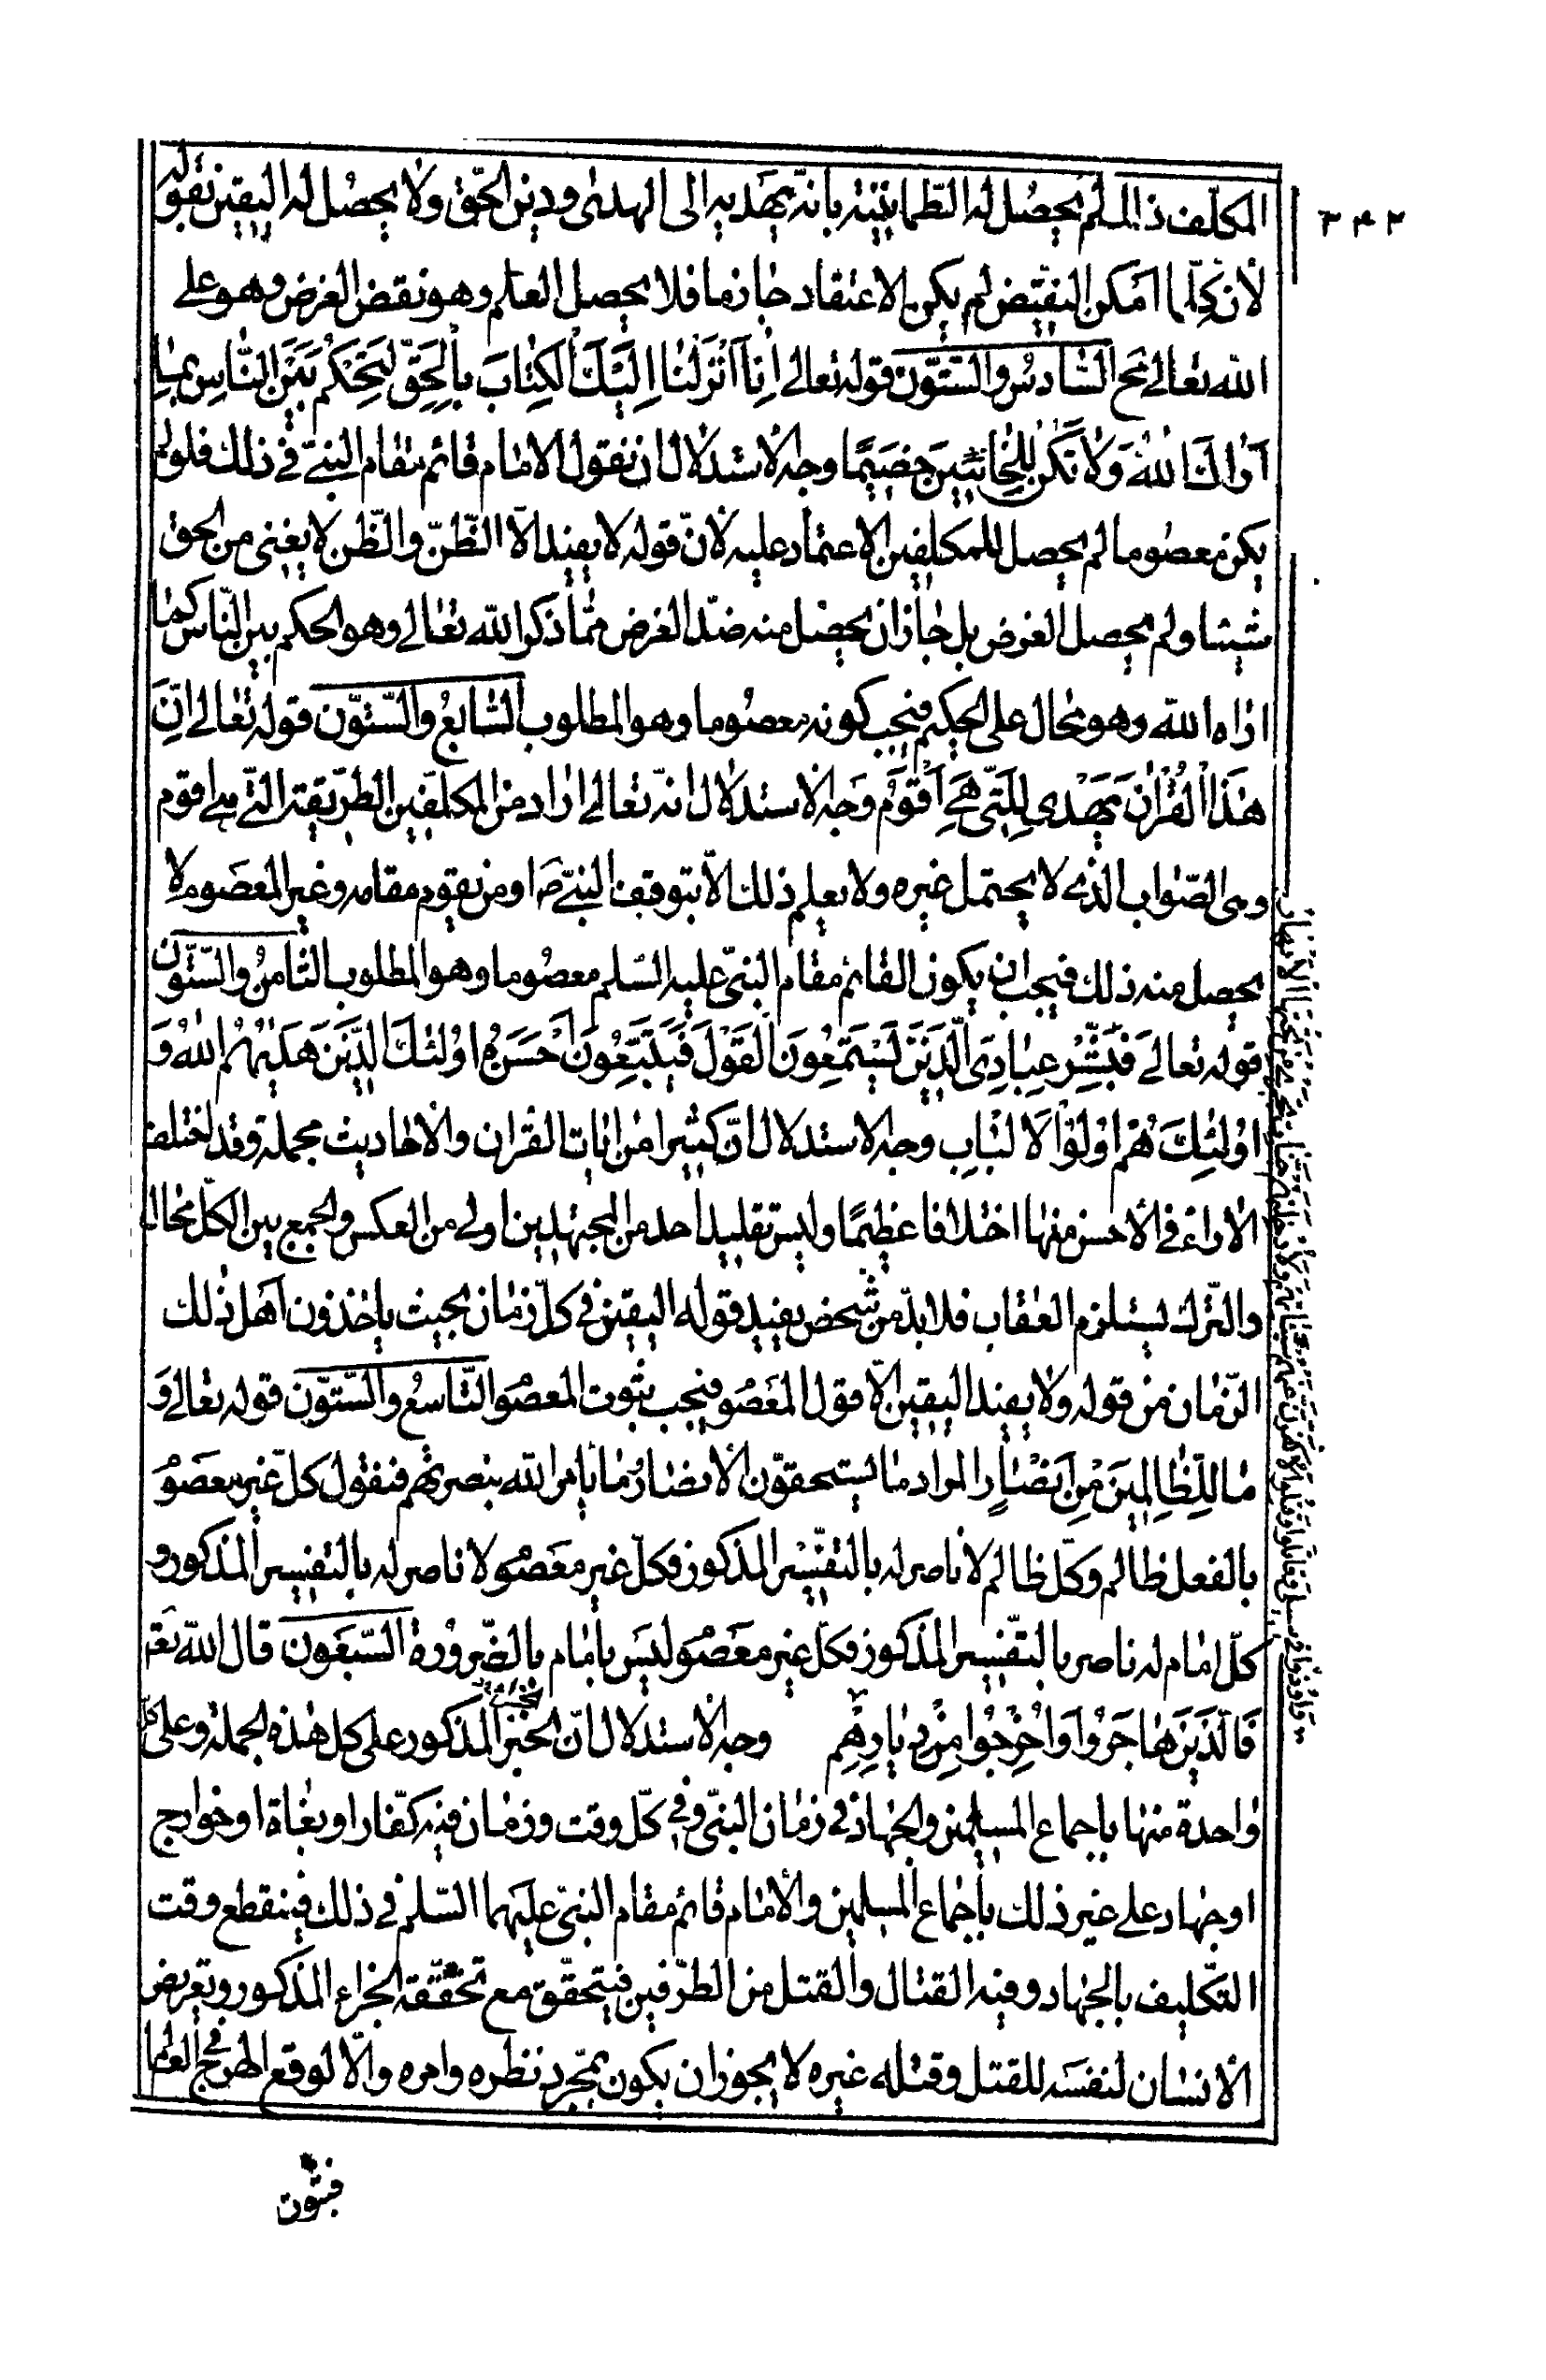 ٣٤٢
المكلف ذالم لم يحصل له الطمانينة بانه يهديه الى الهدى ودين الحق ولا يحصل له اليقين بقوله
لأن كلما امكن النقيض لم يكن الاعتقاد جازما فلا يحصل العلم وهو نقض الغرض وهو على
الله تعالى مح السّادس والستّون قوله تعالى اِنّا اَنْزَلْنا اِلَيْكَ الْكِتابَ بِالْحَقِّ لِتَحْكُمَ بَيْنَ النّاسِ بِما
اَراكَ اللهُ وَلا تَكُنْ لِلْخائِنينَ خَصيمًا وجه الاستدلال ان نقول الامام قائم مقام النبي في ذلك فلو لم
يكن معصوما لم يحصل للمكلفين الاعتماد عليه لأنّ قوله لا يفيد الّا الظّنّ والظّن لا يغنى من الحق
شيئا ولم يحصل الغرض بل جاز ان يحصل منه ضدّ الغرض ممّا ذكر الله تعالى وهو الحكم بين النّاس كما
اراه الله وهو محال على الحكيم فيجب كونه معصوما وهو المطلوب السّابع والستّون قوله تعالى اِنَّ
هٰذَا الْقُرْانَ يَهْدى لِلَّتى هِىَ اَقْوَمُ وجه الاستدلال انه تعالى اراد من المكلّفين الطريقة التي هي اقوم
وهى الصّواب الذى لا يحتمل غيره ولا يعلم ذلك الّا بتوقيف النبيّ ص او من يقوم مقامه وغير المعصوم لا
يحصل منه ذلك فيجب ان يكون القائم مقام النبىّ عليه السّلم معصوما وهو المطلوب الثّامن والستّون
قوله تعالى فَبَشِّرْ عِبادِىَ الَّذينَ يَسْتَمِعُونَ الْقَوْلَ فَيَتَّبِعُونَ اَحْسَنَهُ اُولٰئِكَ الَّذينَ هَديٰهُمُ اللهُ وَ
اُولٰئِكَ هُمْ اُولُوا الْاَلْبابِ وجه الاستدلال انّ كثيرا من ايات القران والاحاديث مجملة وقد اختلف
الاراء في الأحسن منها اختلافا عظيمًا وليس تقليد احد من المجتهدين اولى من العكس والجمع بين الكلّ محال
والترك يستلزم العقاب فلا بدّ من شخص يفيد قوله اليقين في كلّ زمان بحيث ياخذون اهل ذلك
الزّمان من قوله ولا يفيد اليقين الّا قول المعصو فيجب ثبوت المعصو التّاسع والستّون قوله تعالى وَ
ما لِلظّالِمينَ مِنْ اَنْصارٍ المراد ما يستحقّون الانصار وما يامر الله بنصرتهم فنقول كل غير معصو
بالفعل ظالم وكلّ ظالم لا ناصر له بالتفسير المذكور فكلّ غير معصو لا ناصر له بالتفسير المذكور و
كلّ امام له ناصر بالتفسير المذكور فكل غير معصو ليس بامام بالضرورة السّبعون قال الله تع
فَالَّذينَ هاجَرُوا وَاُخْرِجُوا مِنْ دِيارِهِمْ وجه الاستدلال انّ الخبر المذكور على كل هذه الجملة وعلى كل
واحدة منها باجماع المسلمين والجهاد في زمان النبىّ وفي كلّ وقت وزمان فيه كفّار او بغاة او خوارج
او جهاد على غير ذلك باجماع المسلمين والامام قائم مقام النبىّ عليهما السّلم في ذلك فينقطع وقت
التّكليف بالجهاد وفيه القتال والقتل من الطّرفين فيتحقّق مع تحقّقه الجزاء المذكور وتعريض
الانسان لنفسه للقتل وقتله غيره لا يجوز ان يكون بمجرد نظره وامره والّا لوقع الهرج
وَاُوذُوا في سَبيلى وَقاتَلُوا وَقُتِلُوا لَاُكَفِّرَنَّ عَنْهُمْ سَيِّئاتِهِمْ وَلَاُدْخِلَنَّهُمْ جَنّاتٍ تَجْرى مِنْ تَحْتِهَا الْاَنْهارُ